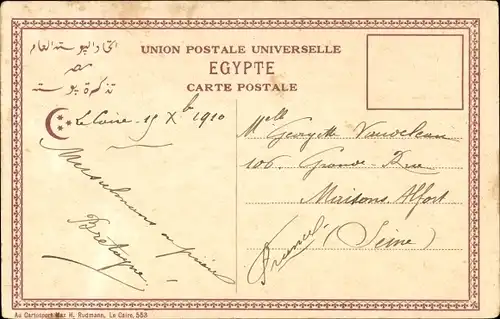 UNION POSTALE UNIVERSELLE
EGYPTE
CARTE POSTALE
اتحاد البوسته العام
مصر
تذكرة بوسته
Le Caire 15 Xbre 1910
Musulmans en prière
Bretagne.
Melle Georgette
106. Grande-Rue
Maisons Alfort
(Seine)
France.
Au Cartosport Max H. Rudmann, Le Caire, 553